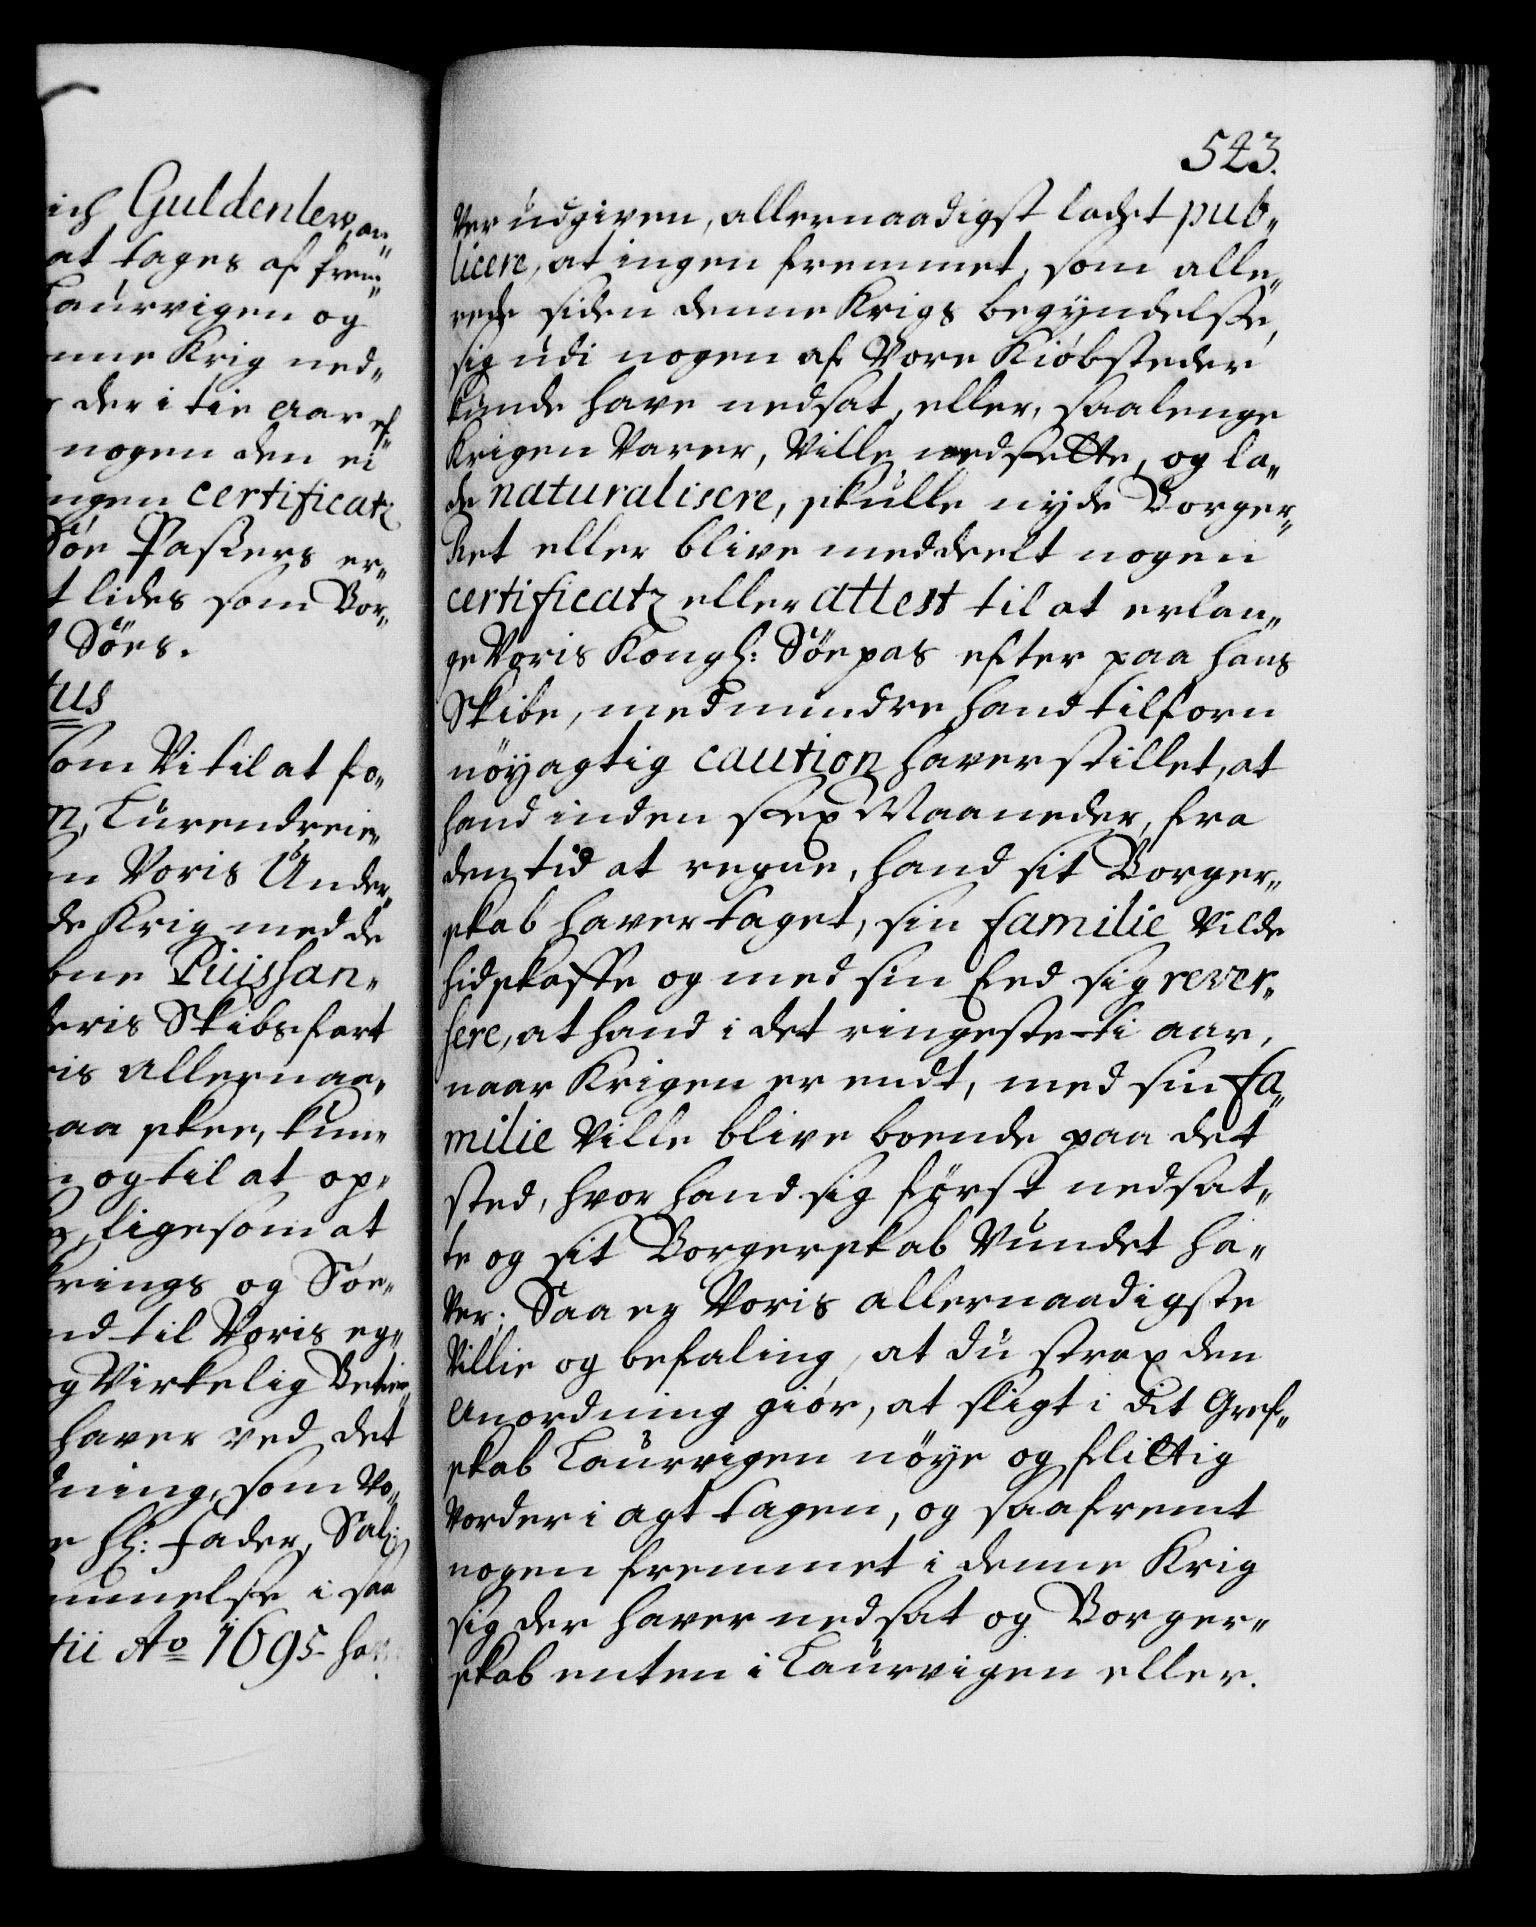 ich Guldenlew, an„
at tages af frem„
Laurvigen og
nne Krig ned„
der i tie Aar ef„
nogen den ei
ngen certificatz
Söe Passers er„
t lides som Bor„
Söes.
tus
som Vi til at fo„
n, Lurendreie„
n Voris Under„
de Krig med de
bne Puissan„
deris Skibsfart
ris allernaa„
aa skee, kun„
og til at op„
ligesom at
krings og Söe„
nd til Voris eg„
og Virkelig Betie„
haver ved det
dning, som Vo„
hl: Fader, Sal:
mmelse i saa
tii Ao 1695 hav
523.
Ver udgiven, allernaadigst ladet pub„
licere, at ingen fremmet, som alle„
rede siden denne Krigs begyndelse,
sig udi nogen af Vore Kiöbsteder
kunde have nedsat, eller, saalenge
Krigen Varer, Ville nedsette, og la„
de naturalisere, skulle nyde Borger„
Ret eller blive meddeelt nogen
certificatz eller attest til at erlan„
ge Voris Kongl: Söepas efter paa hans
Skibe, med mindre hand tilforn
nöyagtig caution haver stillet, at
hand inden sex Maaneder, fra
den tid at regne, hand sit Borger„
skab haver taget, sin familie Vilde
hidskaffe og med sin Eed sig rever„
sere, at hand i det ringeste ti aar,
naar Krigen er endt, med sin fa„
milie Ville blive boende paa det
sted, hvor hand sig först nedsat„
te og sit Borgerskab Vundet ha„
Ver; Saa er Voris allernaadigste
Villie og befaling, at du strax den
Anordning giör, at sligt i dit Gref„
skab Laurvigen nöye og flittig
Vorder i agt tagen, og saafremt
nogen fremmet i denne Krig
sig der haver nedsat og Borger„
skab enten i Laurvigen eller.